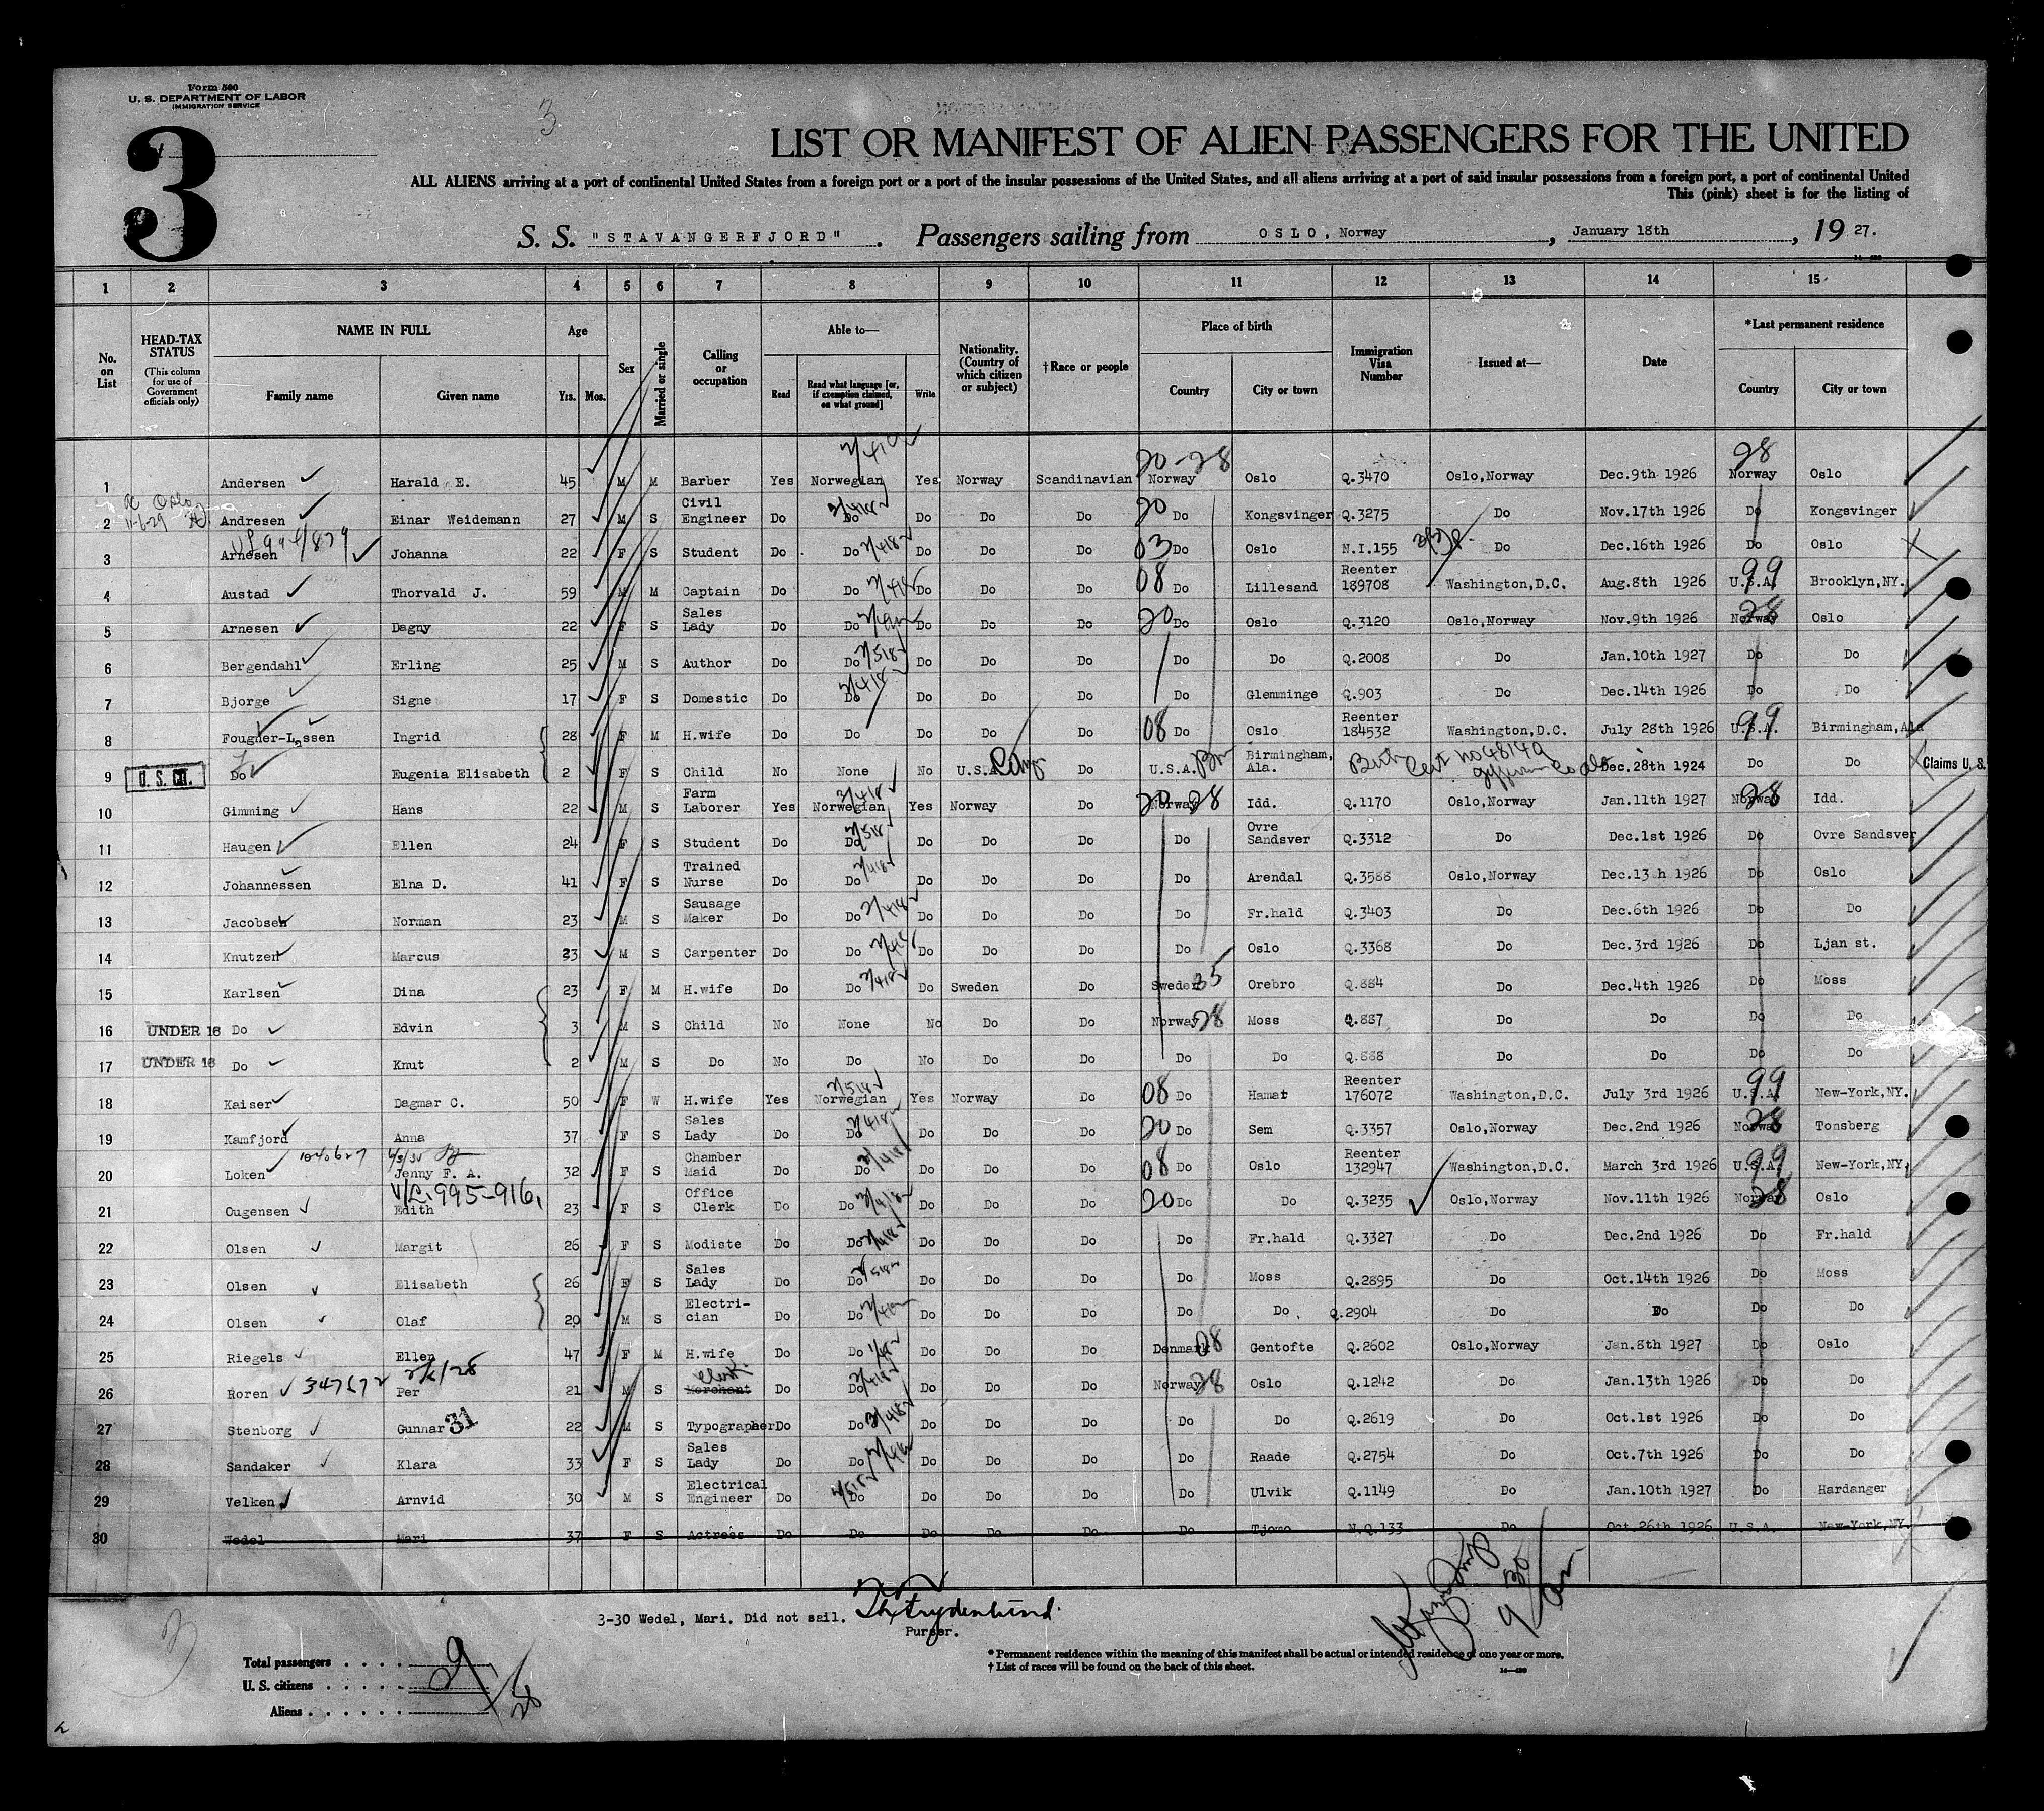 Form 500
U. S. DEPARTMENT OF LABOR
IMMIGRATION SERVICE
3
3
LIST OR MANIFEST OF ALIEN PASSENGERS FOR THE UNITED
ALL ALIENS arriving at a port of continental United States from a foreign port or a port of the insular possessions of the United States, and all aliens arriving at a port of said insular possessions from a foreign port, a port of continental United
This (pink) sheet is for the listing of
S. S. "STAVANGERFJORD". Passengers sailing from OSLO, Norway, January 18th, 19 27.
1 2 3 4 5 6 7 8 9 10 11 12 13 14 15
No. on List HEAD-TAX STATUS (This column for use of Government officials only) NAME IN FULL Family name Given name Age Yrs. Mos. Sex Married or single Calling or occupation Able to— Read Read what language [or, if exemption claimed, on what ground] Write Nationality. (Country of which citizen or subject) †Race or people Place of birth Country City or town Immigration Visa Number Issued at— Date *Last permanent residence Country City or town
1 Andersen Harald E. 45 M M Barber Yes Norwegian Yes Norway Scandinavian 20-28 Norway Oslo Q.3470 Oslo,Norway Dec.9th 1926 28 Norway Oslo
2 Andresen Einar Weidemann 27 M S Civil Engineer Do Do Do Do Do 20 Do Kongsvinger Q.3275 Do Nov.17th 1926 Do Kongsvinger
3 Arnesen Johanna 22 F S Student Do Do Do Do Do 03 Do Oslo N.I.155 Do Dec.16th 1926 Do Oslo
4 Austad Thorvald J. 59 M M Captain Do Do Do Do Do 08 Do Lillesand Reenter 189708 Washington,D.C. Aug.8th 1926 99 U.S.A. Brooklyn,NY.
5 Arnesen Dagny 22 F S Sales Lady Do Do Do Do Do 20 Do Oslo Q.3120 Oslo,Norway Nov.9th 1926 28 Norway Oslo
6 Bergendahl Erling 25 M S Author Do Do Do Do Do Do Do Q.2008 Do Jan.10th 1927 Do Do
7 Bjorge Signe 17 F S Domestic Do Do Do Do Do Do Glemminge Q.903 Do Dec.14th 1926 Do Do
8 Fougner-Lassen Ingrid 28 F M H.wife Do Do Do Do Do 08 Do Oslo Reenter 184532 Washington,D.C. July 28th 1926 99 U.S.A. Birmingham,Ala
9 U. S. CIT. Do Eugenia Elisabeth 2 F S Child No None No U.S.A. Do U.S.A. Birmingham, Ala. Birth Cert no 48149 Dec.28th 1924 Do Do Claims U. S.
10 Gimming Hans 22 M S Farm Laborer Yes Norwegian Yes Norway Do 20 Norway 28 Idd. Q.1170 Oslo,Norway Jan.11th 1927 28 Norway Idd.
11 Haugen Ellen 24 F S Student Do Do Do Do Do Do Ovre Sandsver Q.3312 Do Dec.1st 1926 Do Ovre Sandsver
12 Johannessen Elna D. 41 F S Trained Nurse Do Do Do Do Do Do Arendal Q.3588 Oslo,Norway Dec.13 h 1926 Do Oslo
13 Jacobsen Norman 23 M S Sausage Maker Do Do Do Do Do Do Fr.hald Q.3403 Do Dec.6th 1926 Do Do
14 Knutzen Marcus 23 M S Carpenter Do Do Do Do Do Do Oslo Q.3368 Do Dec.3rd 1926 Do Ljan st.
15 Karlsen Dina 23 F M H.wife Do Do Do Sweden Do Sweden 35 Orebro Q.884 Do Dec.4th 1926 Do Moss
16 UNDER 16 Do Edvin 3 M S Child No None No Do Do Norway 28 Moss Q.887 Do Do Do Do
17 UNDER 16 Do Knut 2 M S Do No Do No Do Do Do Do Q.888 Do Do Do Do
18 Kaiser Dagmar C. 50 F W H.wife Yes Norwegian Yes Norway Do 08 Do Hamar Reenter 176072 Washington,D.C. July 3rd 1926 99 U.S.A. New-York,NY.
19 Kamfjord Anna 37 F S Sales Lady Do Do Do Do Do 20 Do Sem Q.3357 Oslo,Norway Dec.2nd 1926 28 Norway Tonsberg
20 Loken Jenny F. A. 32 F S Chamber Maid Do Do Do Do Do 08 Do Oslo Reenter 132947 Washington,D.C. March 3rd 1926 99 U.S.A. New-York,NY.
V/L.995-916,
21 Ougensen Edith 23 F S Office Clerk Do Do Do Do Do 20 Do Do Q.3235 Oslo,Norway Nov.11th 1926 28 Norway Oslo
22 Olsen Margit 26 F S Modiste Do Do Do Do Do Do Fr.hald Q.3327 Do Dec.2nd 1926 Do Fr.hald
23 Olsen Elisabeth 26 F S Sales Lady Do Do Do Do Do Do Moss Q.2895 Do Oct.14th 1926 Do Moss
24 Olsen Olaf 20 M S Electri-cian Do Do Do Do Do Do Do Q.2904 Do Do Do Do
25 Riegels Ellen 47 F M H.wife Do Do Do Do Do Denmark 08 Gentofte Q.2602 Oslo,Norway Jan.8th 1927 Do Oslo
26 Roren Per 21 M S Merchant Clerk Do Do Do Do Do Norway 28 Oslo Q.1242 Do Jan.13th 1926 Do Do
27 Stenborg Gunnar 31 22 M S Typographer Do Do Do Do Do Do Do Q.2619 Do Oct.1st 1926 Do Do
28 Sandaker Klara 33 F S Sales Lady Do Do Do Do Do Do Raade Q.2754 Do Oct.7th 1926 Do Do
29 Velken Arnvid 30 M S Electrical Engineer Do Do Do Do Do Do Ulvik Q.1149 Do Jan.10th 1927 Do Hardanger
30 Wedel Mari 37 F S Actress Do Do Do Do Do Do Tjomo N.Q.133 Do Oct.26th 1926 U.S.A. New-York,NY.
3-30 Wedel, Mari. Did not sail.
Purser.
* Permanent residence within the meaning of this manifest shall be actual or intended residence of one year or more.
† List of races will be found on the back of this sheet.
Total passengers . . . . 29
U. S. citizens . . . . . 1
Aliens . . . . . . 28